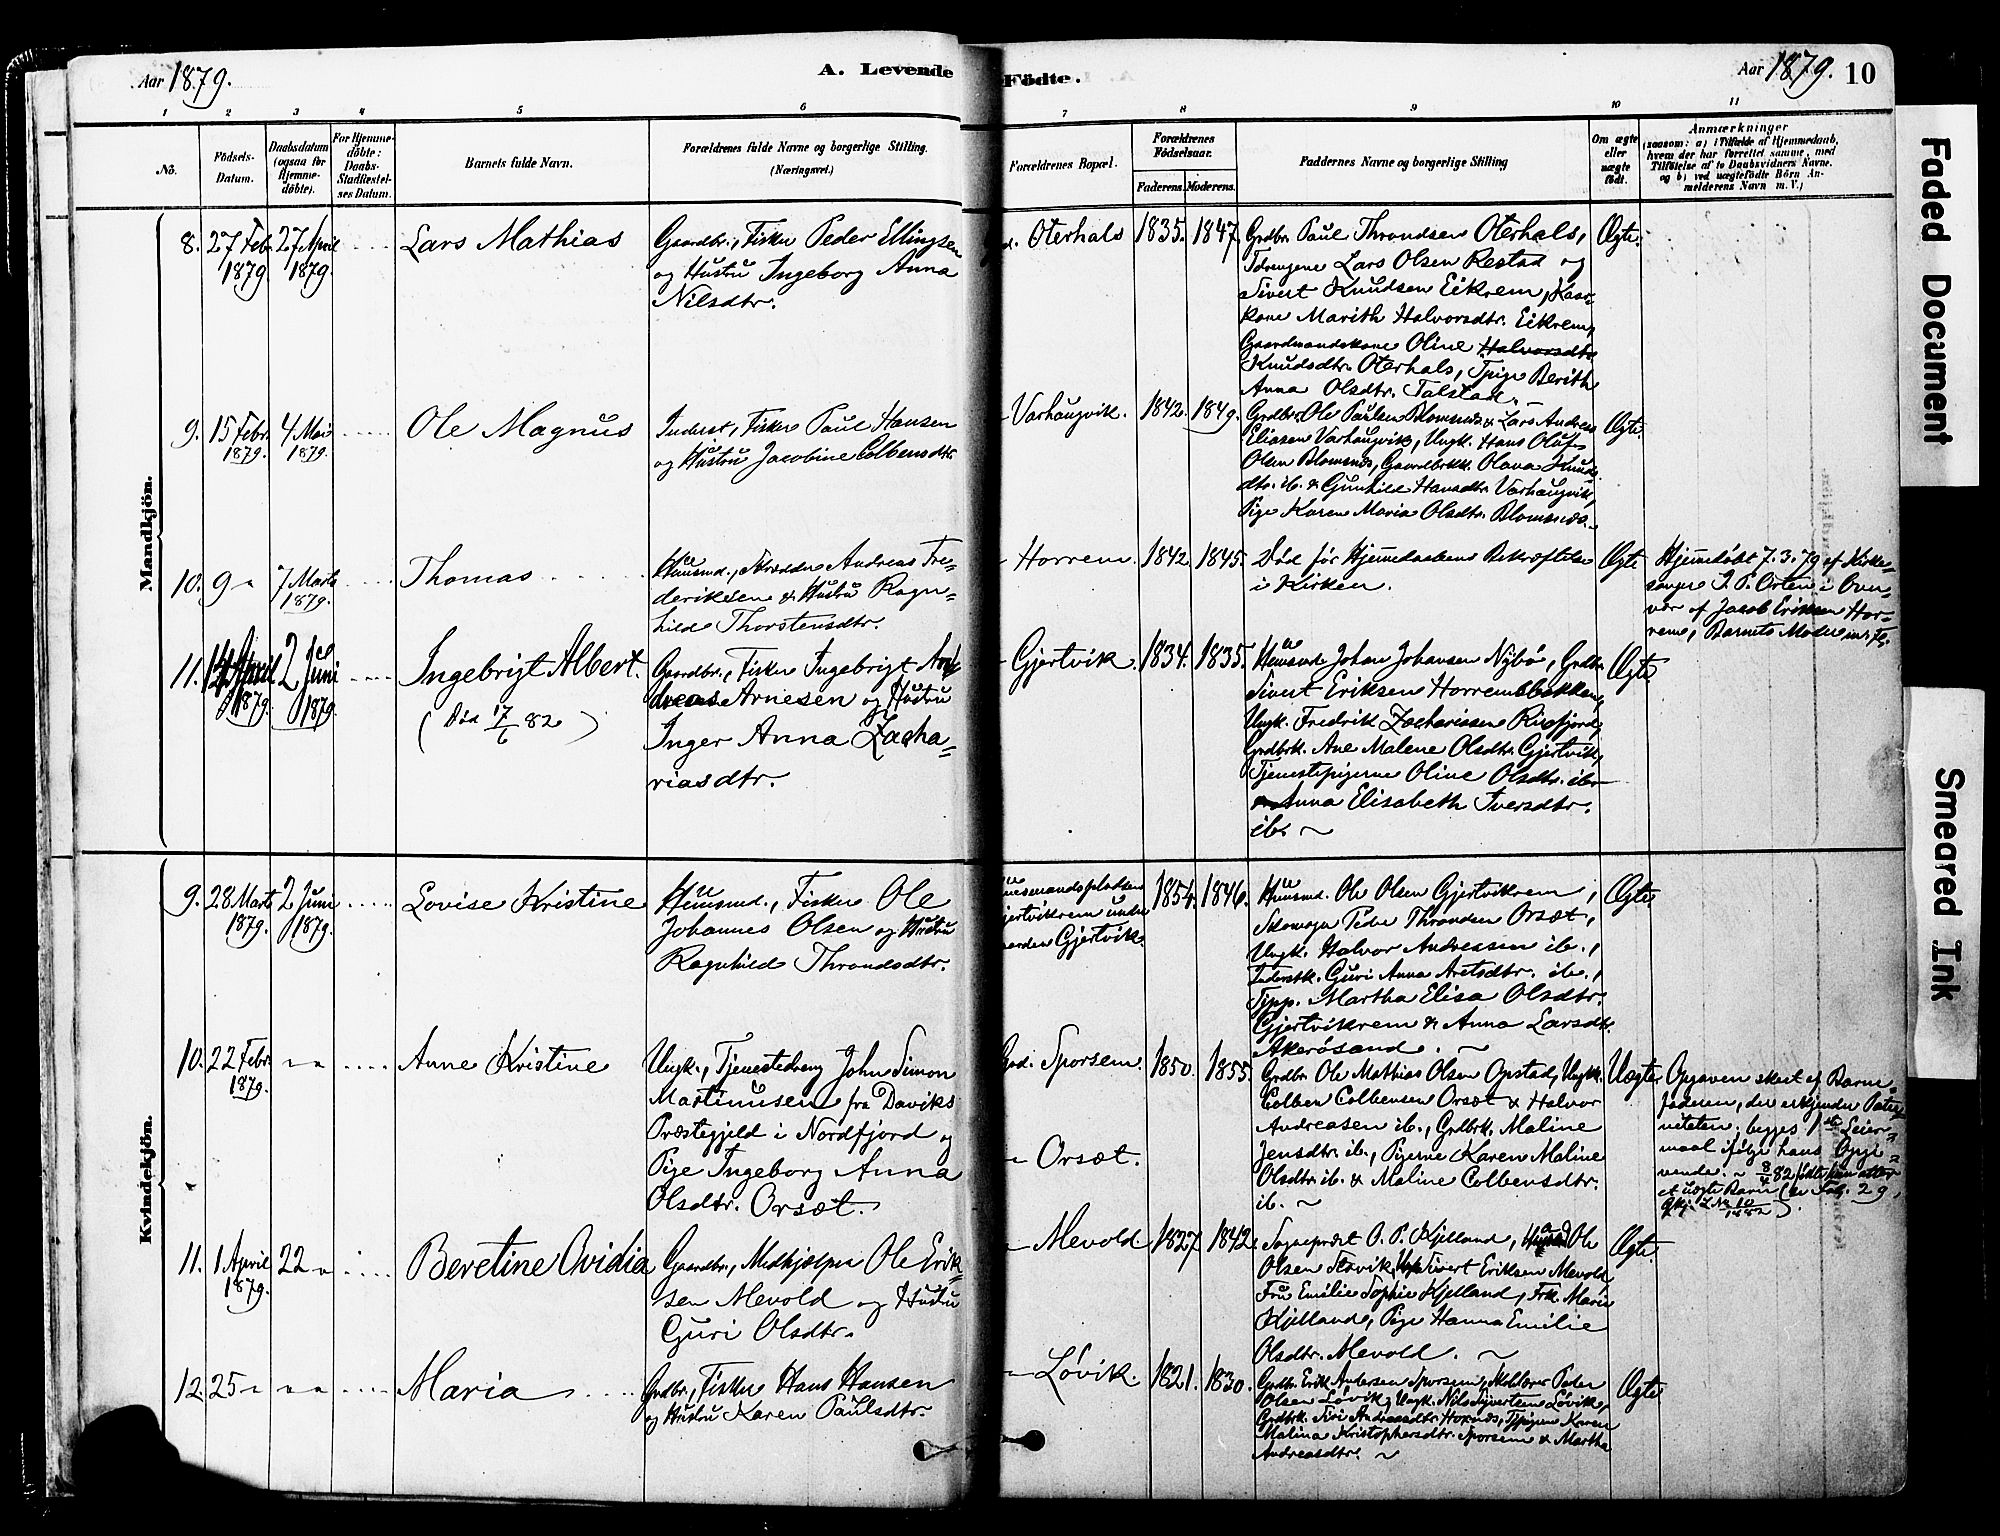 Aar 1879.
A. Levende Födte.
Aar 1879. 10
1 2 3 4 5 6 7 8 9 10 11
No.
Födsels-
Datum.
Daabsdatum
(ogsaa før
Hjemme-
döbte).
For Hjemme-
döbte:
Daabs-
Stadfæstel-
ses Datum.
Barnets fulde Navn.
Forældrenes fulde Navne og borgerlige Stilling.
(Næringsvei.)
Forældrenes Bopæl.
Forældrenes
Födselsaar.
Faderens. Moderens.
Faddernes Navne og borgerlige Stilling
Om ægte
eller
uægte
født.
Anmærkninger
(saasom: a) i Tilfælde af Hjemmedaab,
hvem der har forrettet samme, med
Tilföielse af to Daabsvidners Navne.
og b) ved uægtefödte Börn An-
melderens Navn m. V.)
Mandkjön.
8. 27 Feb. 1879 27 April 1879 Lars Mathias
Gaardbr., Fisker Peder Ellingsen
og Hustru Ingeborg Anna
Nilsdtr.
Oterhals 1835. 1847.
Grdbr. Paul Throndsen Oterhals,
Tdrengene Lars Olsen Restad og
Sivert Knudsen Eikrem, Kaar-
kone Marith Halvorsdtr. Eikrem,
Gaardmandskone Oline Halvorsdtr.
Knudsdtr. Oterhals, Tpige Berith
Anna Olsdtr. Talstad.
Ægte.
9. 15 Febr. 1879. 4 Mai 1879. Ole Magnus
Inderst, Fisker Paul Hansen
og Hustru Jacobine Colbensdtr.
- Varhaugvik. 1842. 1849.
Grdbr. Ole Paulsen Blomsnes & Lars Andreas
Eliasen Varhaugvik, Ungk. Hans Oluf
Olsen Blomsnes, Gaardbrkk. Olava Knuds-
dtr. ib. & Gunhild Hansdtr. Varhaugvik,
Pige Karen Maria Olsdtr. Blomsnes.
Ægte.
10. 9 " 7 Marts 1879. Thomas
Husmd., Skrædder Andreas Fre-
deriksen & Hustru Ragn-
hild Thorstensdtr.
- Horrem 1842 1845.
Død før Hjemmedaabens Bekræftelse
i Kirken.
Ægte
Hjemmedøbt 7.3.79 af Kirke-
sanger J. P. Orten i Over-
vær af Jacob Eriksen Hor-
rem, Barnets Moder m. fl.
11. 14 April 1879. 2 Juni 1879. Ingebrigt Albert.
(Død 17/6 82)
Gaardbr., Fisker Ingebrigt An-
dreas Arnesen og Hustru
Inger Anna Zacha-
riasdtr.
- Gjertvik. 1834. 1835.
Husmd. Johan Johansen Nybø, Grdbr.
Sivert Eriksen Horremsbakken,
Ungk. Fredrik Zachariasen Risfjord,
Grdbrk. Ane Malene Olsdtr. Gjertvik,
Tjenestepigerne Oline Olsdtr. ib
& Anna Elisabeth Iversdtr.
ib. ~
Ægte
Kvindekjön.
9. 28 Marts 1879. 2 Juni 1879. Lovise Kristine
Husmd., Fisker Ole
Johannes Olsen og Hustru
Ragnhild Throndsdtr.
usmandspladsen
jertvikrem under
aarden Gjertvik.
1854. 1846.
Husmd. Ole Olsen Gjertvikrem,
Skomager Peder Throndsen Orsæt,
Ungk. Halvor Andreassen ib.,
Inderstk. Guri Anna Aretsdtr. ib.,
Tpp. Martha Elisa Olsdtr.
Gjertvikrem & Anna Larsdtr.
Akerøsand. ~
Ægte.
10. 22 Febr. 1879. " " Anne Kristine
Ungk., Tjenestedreng John Simon
Martinusen fra Daviks
Præstegjeld i Nordfjord og
Pige Ingeborg Anna
Olsdtr. Orsæt.
Grd. Sporsem. 1850. 1855.
- Orsæt.
Grdbr. Ole Mathias Olsen Opstad, Ungk.
Colben Colbensen Orsæt & Halvor
Andreasen ib., Grdbrk. Maline
Jensdtr. ib., Pigerne Karen Maline
Olsdtr. ib. & Maline Colbensdtr.
ib. ~
Uægte.
Opgaven skeet af Barne-
faderen, der erkjender Pater-
niteten; begges 1ste Leier-
maal ifølge hans Opgi-
vende. ~ 8/4 82 fødte hun atter
et uægte Barn (se Fol. 29,
Qkj. L.No 10/1882).
11. 1 April 1879. 22 " Beretine Ovidia
Gaardbr., Medhjælper Ole Erik-
sen Mevold og Hustru
Guri Olsdtr.
- Mevold 1827. 1842.
Sognepræst O. P. Kjelland, Ole
Olsen Flovik, Sivert Eriksen Mevold,
Fru Emilie Sophie Kjelland, Frk. Marie
Kjelland, Pige Hanna Emilie
Olsdtr. Mevold. ~
Ægte.
12. 25 " " " Maria
Grdbr., Fisker Hans Hansen
og Hustru Karen Paulsdtr.
- Løvik. 1821. 1830.
Grdbr. Erik Andersen Sporsem, Peder
Olsen Løvik, Ungk. Nils Syvertsen Løvik,
Grdbrk. Siri Andreasdtr. Hoxnæs, Tpigerne Karen
Malina Kristophersdtr. Sporsem & Martha
Andreasdtr. ~
Ægte
Faded Document
Smeared Ink